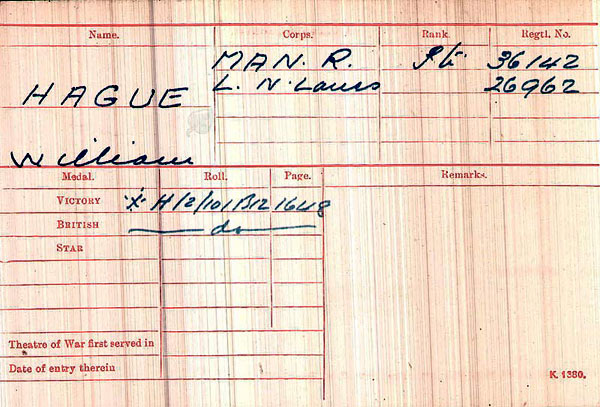 Name. Corps. Rank. Regtl. No.
MAN. R. Pte 36142
HAGUE L. N. Lancs 26962
William
Medal. Roll. Page. Remarks.
VICTORY H/2/101B12 1648
BRITISH do
STAR
Theatre of War first served in
Date of entry therein
K. 1380.